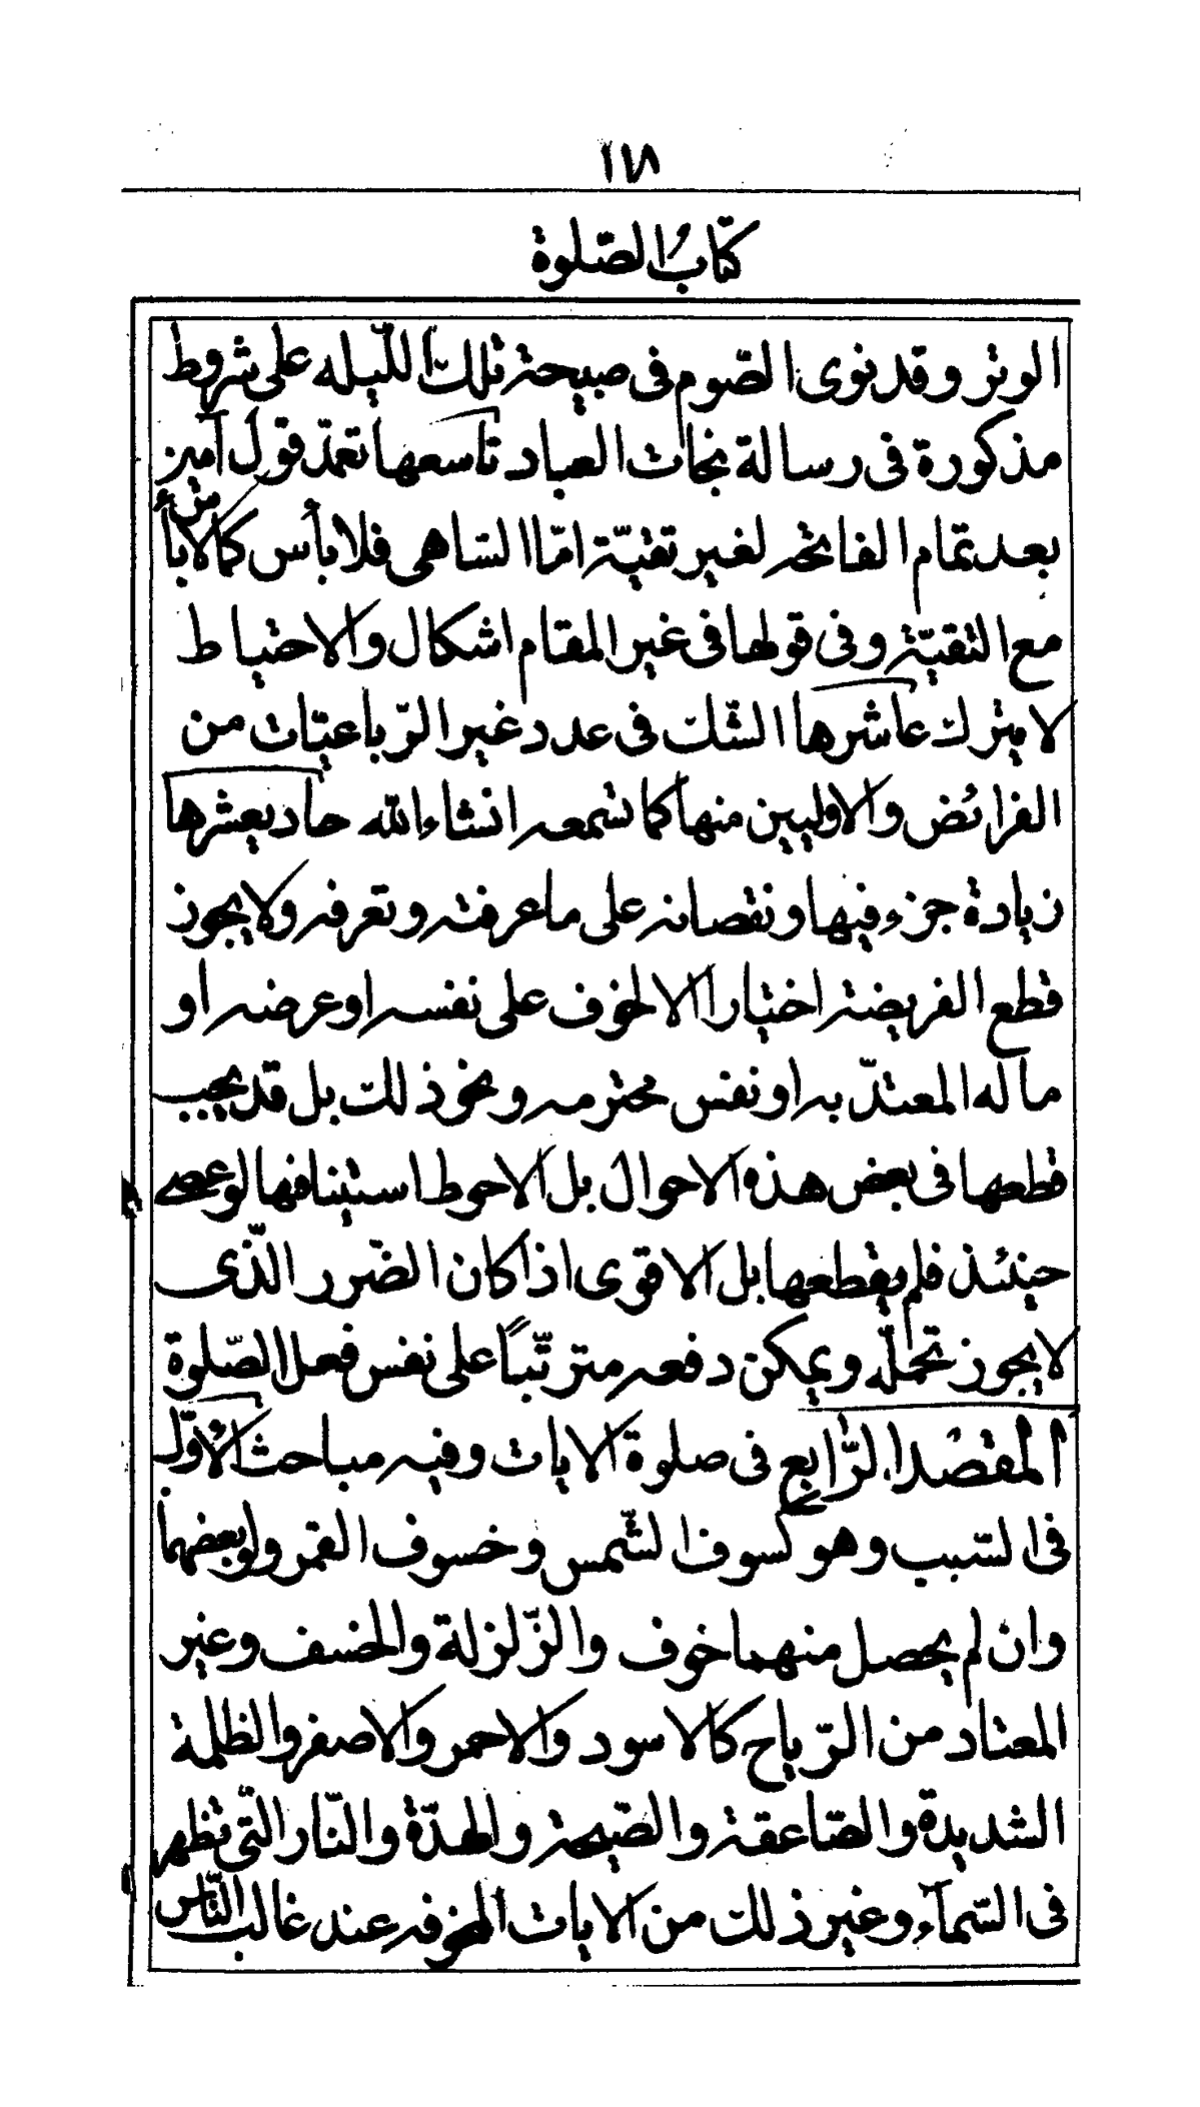 ١١٨
كتابُ الصّلوة
الوتر وقد نوى الصّوم فى صبيحة تلك اللّيله على شروط
مذكورة فى رسالة نجاة العباد تاسعها تعمّد قول آمين
بعد تمام الفاتحه لغير تقيّة امّا السّاهى فلا بأس كما لا بأس
مع التقيّة وفى قولها فى غير المقام اشكال والاحتياط
لا يترك عاشرها الشّك فى عدد غير الرّباعيّات من
الفرائض والاوليين منها كما تسمعه انشاءالله حاديعشرها
زيادة جزء فيها ونقصانه على ما عرفته وتعرفه ولا يجوز
قطع الفريضة اختيارا الا لخوف على نفسه او عرضه او
ماله المعتدّ به او نفس محترمه ونحو ذلك بل قد يجب
قطعها فى بعض هذه الاحوال بل الاحوط استينافها لو عصى
حينئذ فلم يقطعها بل الاقوى اذا كان الضّرر الّذى
لا يجوز تحمّله ويمكن دفعه مترتّباً على نفس فعل الصّلوة
المقصد الرّابع فى صلوة الايات وفيه مباحث الاوّل
فى السّبب وهو كسوف الشّمس وخسوف القمر ولو بعضهما
وان لم يحصل منهما خوف والزّلزلة والخسف وغير
المعتاد من الرّياح كالاسود والاحمر والاصفر والظلمة
الشديدة والصّاعقة والصّيحة والهدّة والنّار الّتى تظهر
فى السّمآء وغير ذلك من الايات المخوفه عند غالب النّاس